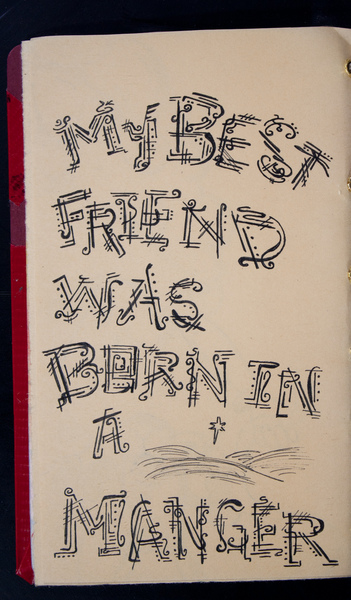 My BEST
FRIEND
WAS
BORN IN
A
MANGER